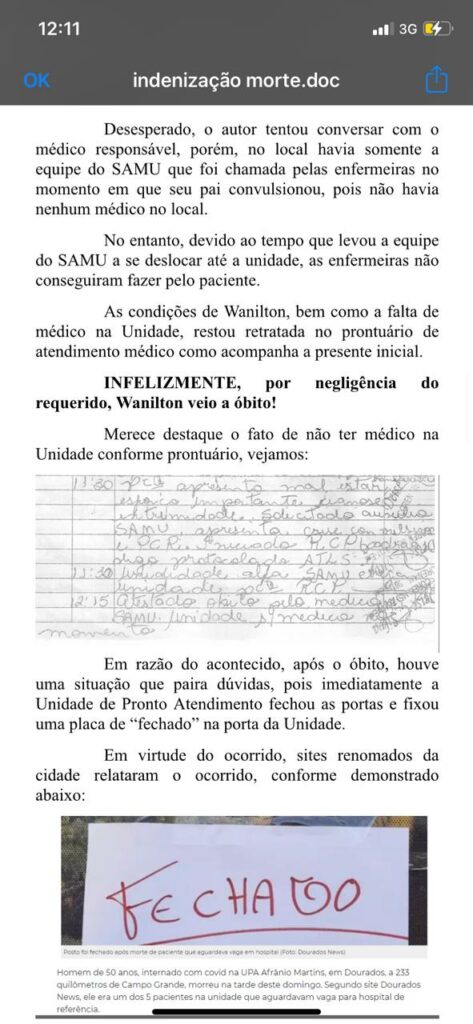 12:11 3G
OK indenização morte.doc
Desesperado, o autor tentou conversar com o
médico responsável, porém, no local havia somente a
equipe do SAMU que foi chamada pelas enfermeiras no
momento em que seu pai convulsionou, pois não havia
nenhum médico no local.
No entanto, devido ao tempo que levou a equipe
do SAMU a se deslocar até a unidade, as enfermeiras não
conseguiram fazer pelo paciente.
As condições de Wanilton, bem como a falta de
médico na Unidade, restou retratada no prontuário de
atendimento médico como acompanha a presente inicial.
INFELIZMENTE, por negligência do
requerido, Wanilton veio a óbito!
Merece destaque o fato de não ter médico na
Unidade conforme prontuário, vejamos:
11:30 pcte apresenta mal estar
importante, cianose
extremidade. Solicitado auxílio
SAMU, apresenta crise convulsiva
e PCR. Iniciado RCP
protocolo do
11:30 unidade SAMU
unidade RCP
12:15 Atestado óbito pelo medico
SAMU. Unidade s/ medico
momento.
Em razão do acontecido, após o óbito, houve
uma situação que paira dúvidas, pois imediatamente a
Unidade de Pronto Atendimento fechou as portas e fixou
uma placa de “fechado” na porta da Unidade.
Em virtude do ocorrido, sites renomados da
cidade relataram o ocorrido, conforme demonstrado
abaixo:
FECHADO
Posto foi fechado após morte de paciente que aguardava vaga em hospital (Foto: Dourados News)
Homem de 50 anos, internado com covid na UPA Afrânio Martins, em Dourados, a 233
quilômetros de Campo Grande, morreu na tarde deste domingo. Segundo site Dourados
News, ele era um dos 5 pacientes na unidade que aguardavam vaga para hospital de
referência.